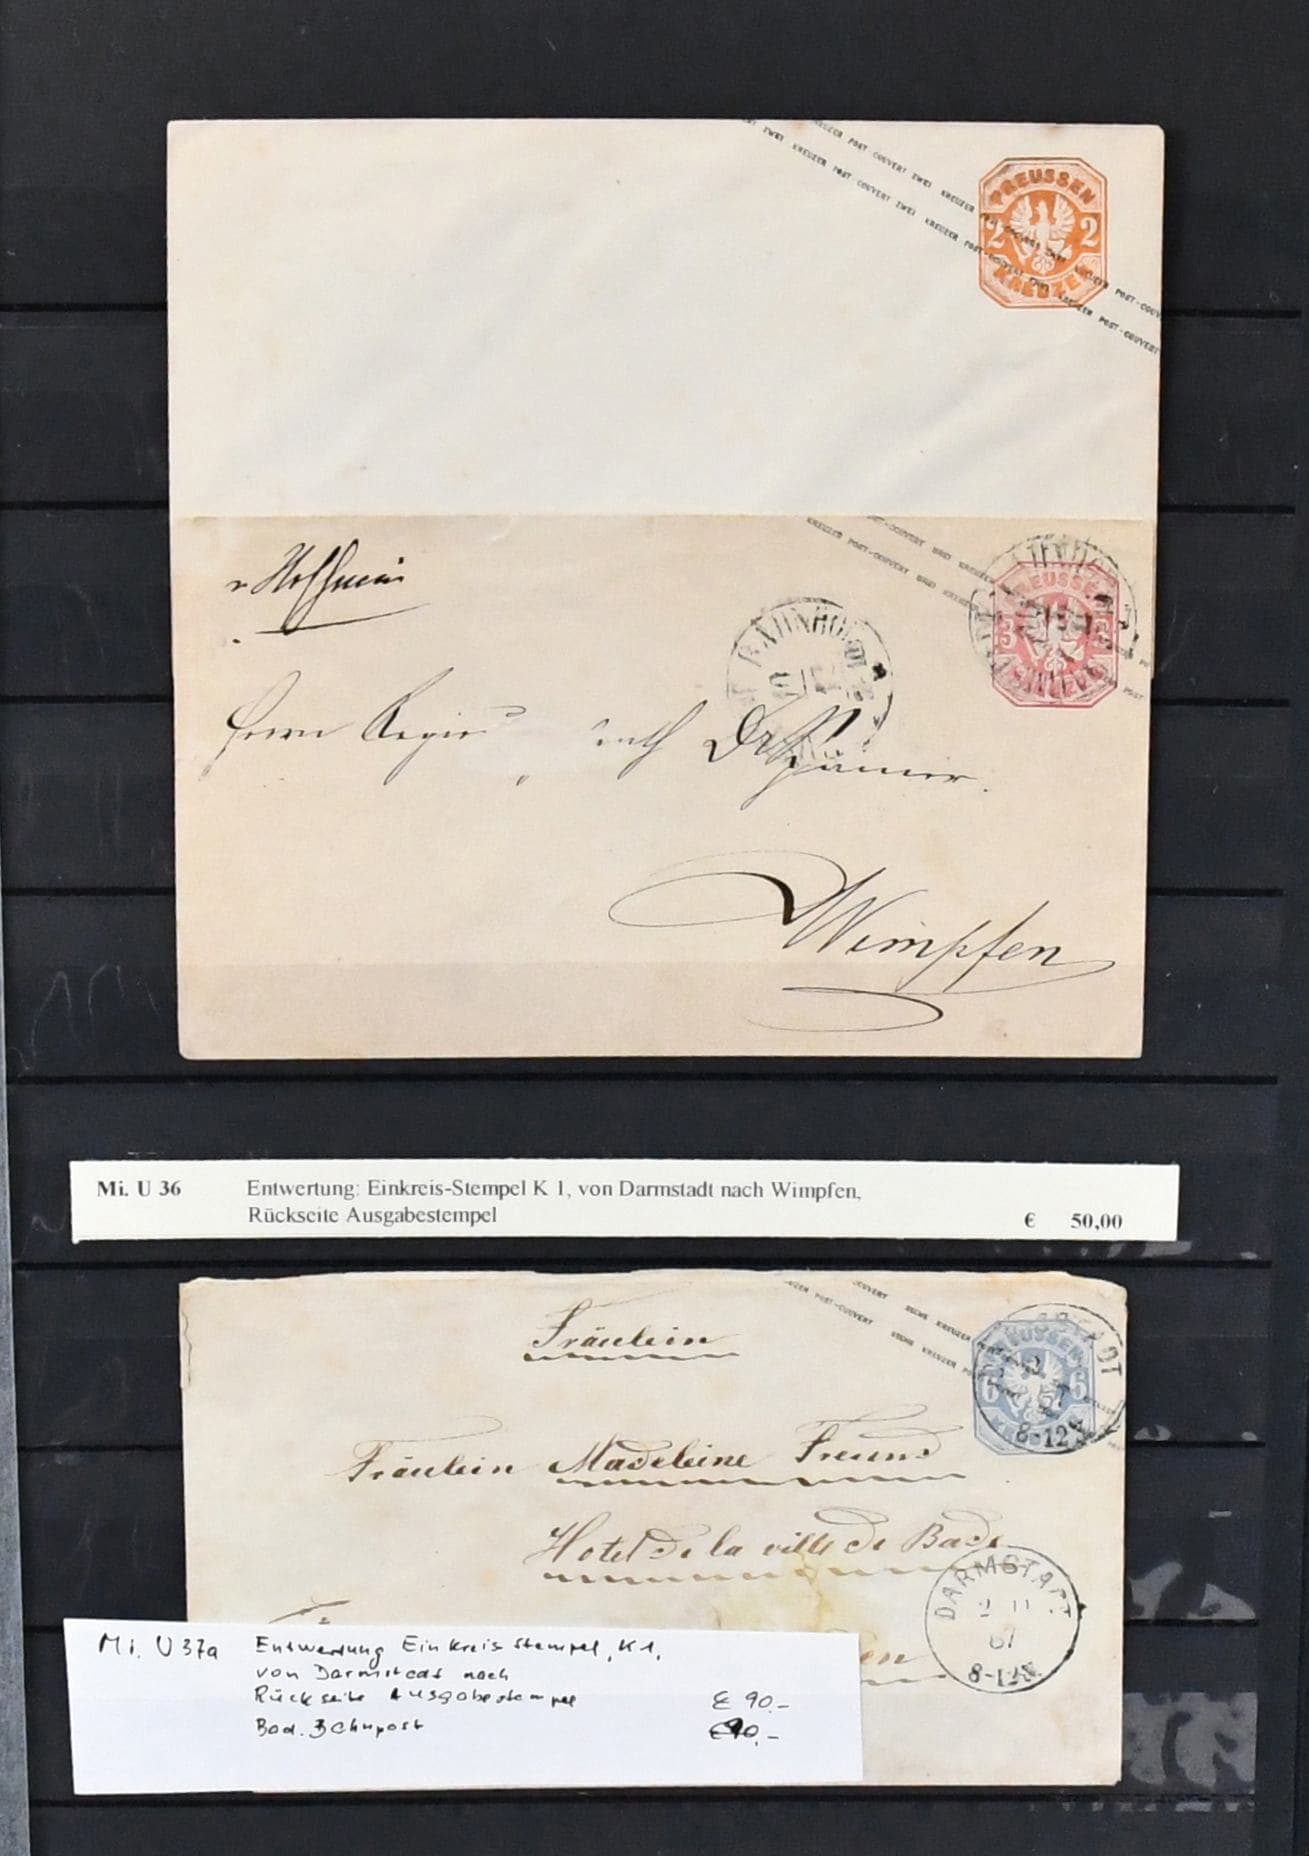 ZWEI KREUZER POST-COUVERT ZWEI KREUZER
ZWEI KREUZER POST-COUVERT ZWEI KREUZER POST-COUVERT
POST-COUVERT
PREUSSEN
2 2
KREUZER
KREUZER POST-COUVERT DREI KREUZER
POST-COUVERT DREI KREUZER
PREUSSEN
3 3
Herrn
Dr
Wimpfen
Mi. U 36 Entwertung: Einkreis-Stempel K 1, von Darmstadt nach Wimpfen,
Rückseite Ausgabestempel € 50,00
KREUZER POST-COUVERT SECHS KREUZER
COUVERT SECHS KREUZER
PREUSSEN
6 6
8-12
Fräulein
Fräulein Madeleine Freund
Hotel de la ville de Bade
DARMSTADT
2 11
67
Mi. U 37a Entwertung Einkreis Stempel, K 1,
von Darmstadt nach
Rückseite Ausgabestempel € 90.-
Bad. Bahnpost